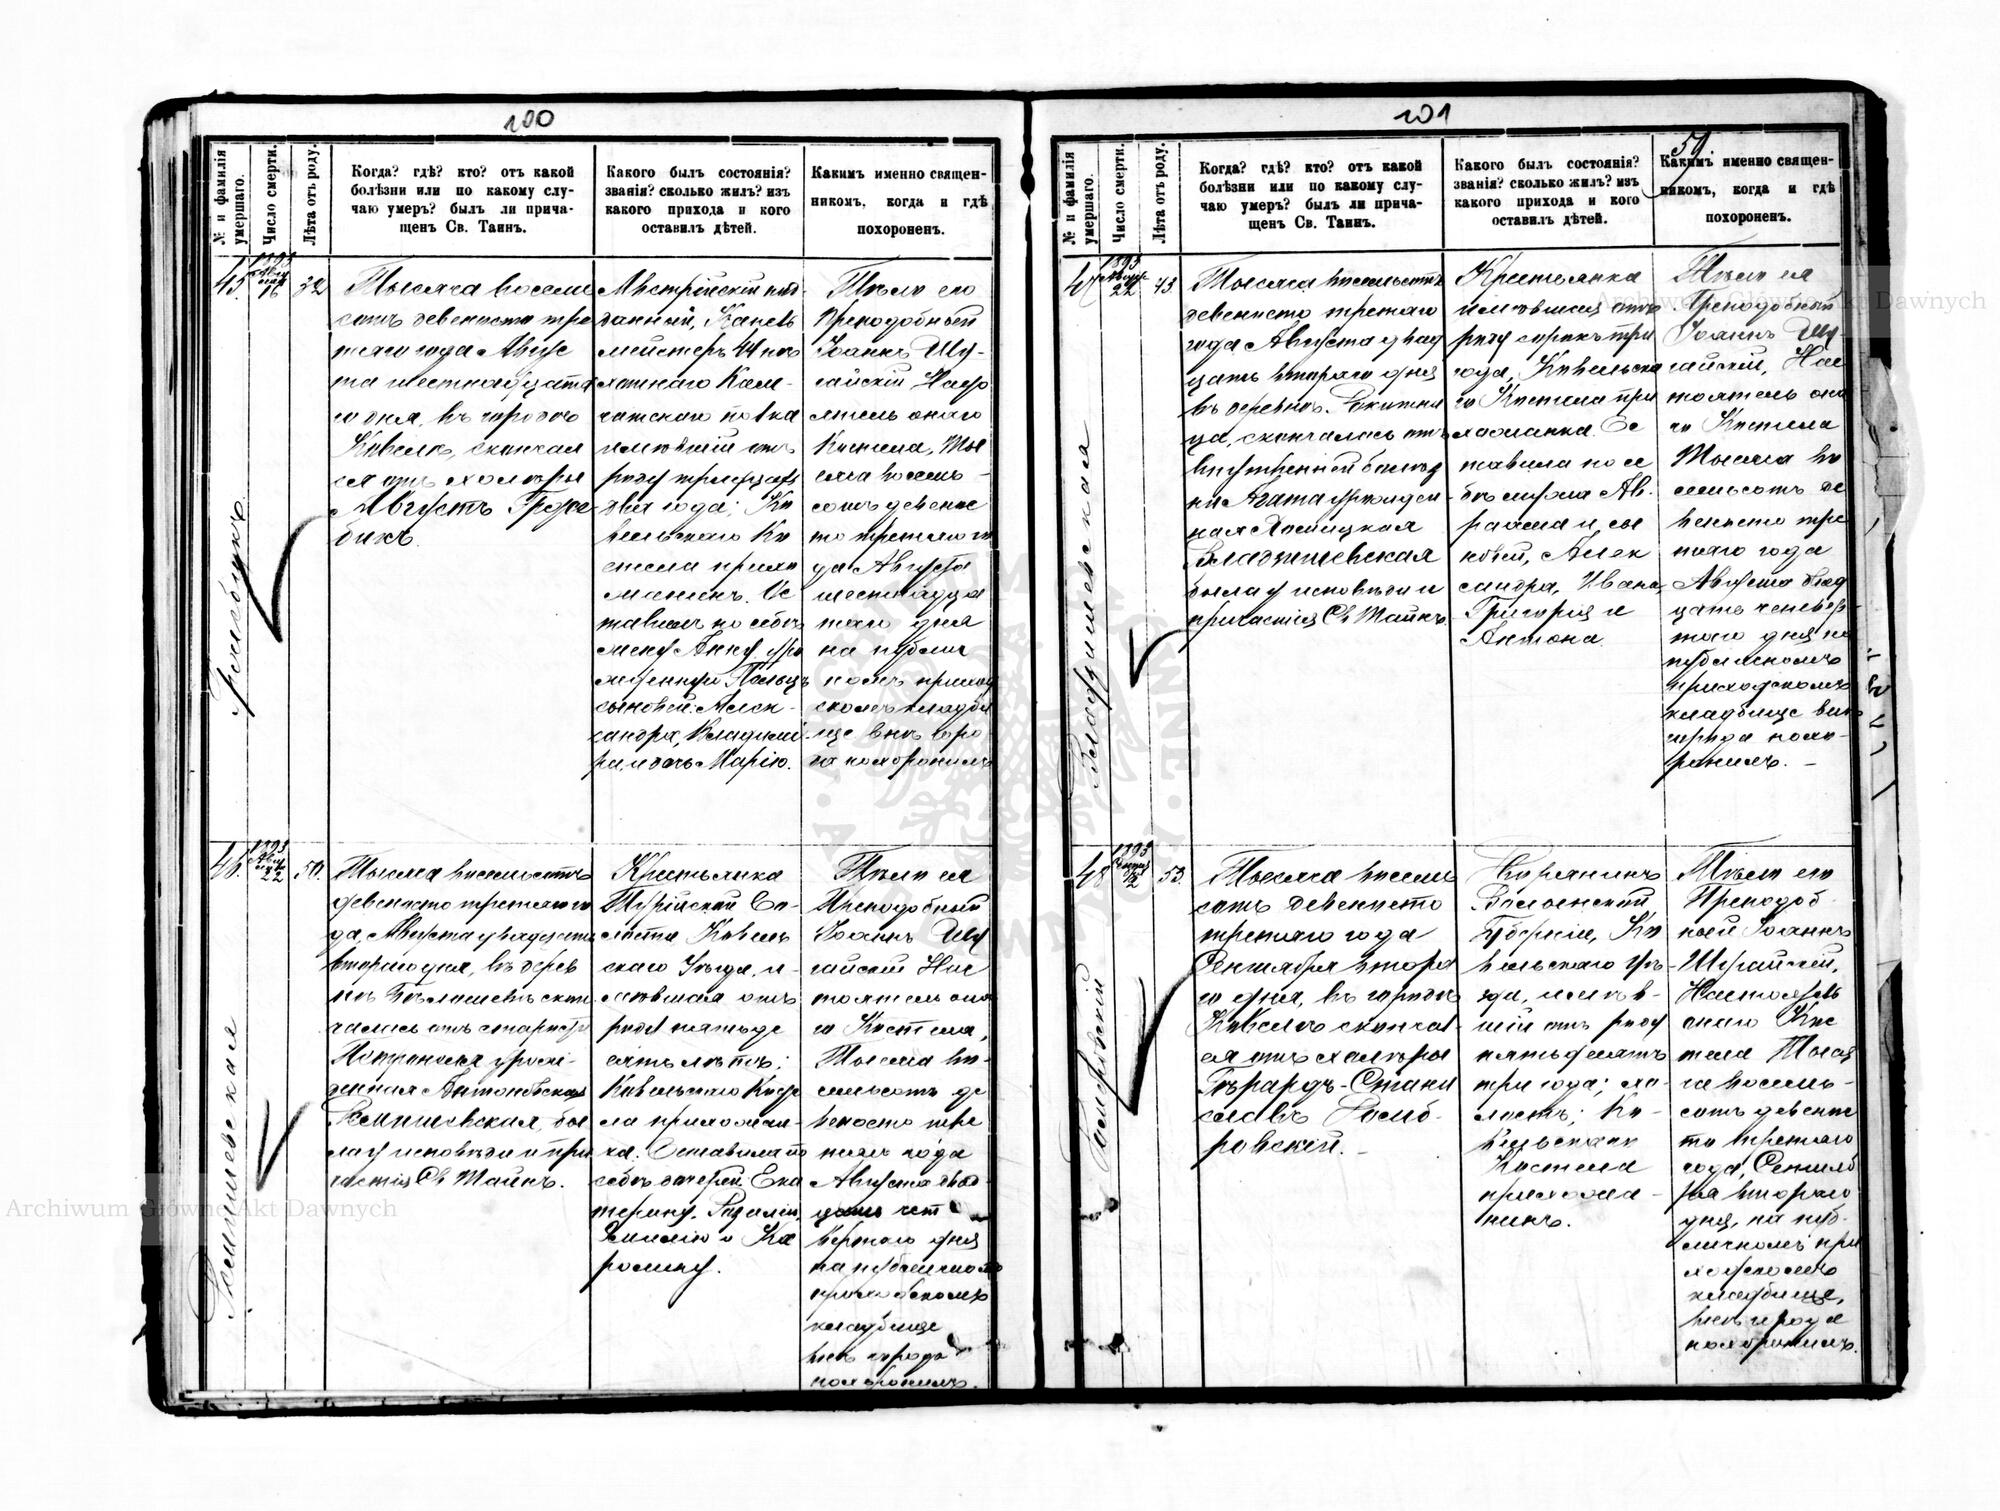 100
№ и фамилія умершаго.
Число смерти.
Лѣта отъ роду.
Когда? гдѣ? кто? отъ какой
болѣзни или по какому слу-
чаю умеръ? былъ ли прича-
щенъ Св. Таинъ.
Какого былъ состоянія?
званія? сколько жилъ? изъ
какого прихода и кого
оставилъ дѣтей.
Какимъ именно священ-
никомъ, когда и гдѣ
похороненъ.
45.
1893
Авгу
ста
16
32
Тысяча восемь
сотъ девяносто тре
тяго года Авгус
та шестнадцата
го дня, въ городѣ
Ковелѣ, скончал
ся отъ холеры
Августъ
бикъ.
Австрійскій под
данный, Капель
мейстеръ 44 пѣ
хотнаго Кам-
чатскаго полка
имѣвшій отъ
роду тридцать
два года; Ко
вельскаго Ко
стела прихо
жанинъ. Ос
тавилъ по себѣ
жену Анну уро
жденную
сыновей: Алек-
сандра, Владими
ра, и дочь Марію.
Тѣло его
Преподобный
Іоаннъ Шу-
гайскій Насто
ятель онаго
Костела, Ты
сяча восемь-
сотъ девянос
то третьяго го
да Августа
шестнадца
таго дня
на публич
номъ приход
скомъ кладби
ще внѣ горо
да похоронилъ
46.
1893
Авгу
ста
22
50.
Тысяча восемьсотъ
девяносто третьяго го
да, Августа двадцать
втораго дня, въ дерев
нѣ скон
чалась отъ старости
урож-
денная Антоновская
бы
ла у исповѣди и при
частія Св Тайнъ.
Крестьянка
Турійской Во-
лости, Ковель
скаго Уѣзда, и-
мѣвшая отъ
роду пятьде
сятъ лѣтъ;
Ковельскаго Косте
ла прихожан
ка. Оставила по
себѣ дочерей: Ека
терину, Розалію,
Эмилію и Ка
ролину.
Тѣло ея
Преподобный
Іоаннъ Шу
гайскій Нас
тоятель она
го Костела,
Тысяча во-
семьсотъ де
вяносто тре
тьяго года
Августа двад-
цать чет
вертаго дня
на публичномъ
приходскомъ
кладбище
внѣ города
похоронилъ.
101
59.
№ и фамилія умершаго.
Число смерти.
Лѣта отъ роду.
Когда? гдѣ? кто? отъ какой
болѣзни или по какому слу-
чаю умеръ? былъ ли прича-
щенъ Св. Таинъ.
Какого былъ состоянія?
званія? сколько жилъ? изъ
какого прихода и кого
оставилъ дѣтей.
Какимъ именно священ-
никомъ, когда и гдѣ
похороненъ.
47
1893
Авгус
22
43.
Тысяча восемьсотъ
девяносто третьяго
года, Августа двад
цать втораго дня
въ деревнѣ
скончалась отъ
внутренней болѣз
ни Агата урожден
ная
была у исповѣди и
причастія Св Тайнъ.
Крестьянка
имѣвшая отъ
роду сорокъ три
года, Ковельска
го Костела при
хожанка. Ос
тавила по се
бѣ мужа Ав-
раама и сы
новей, Алек
сандра, Ивана,
Григорія и
Антона.
Тѣло ея
Преподобный
Іоаннъ Шу
гайскій, Нас
тоятель она
го Костела
Тысяча во
семьсотъ де
вяносто тре
тьяго года
Августа двад
цать четвер-
таго дня на
публичномъ
приходскомъ
кладбище внѣ
города похо-
ронилъ.
48
1893
Сентяб
2
53.
Тысяча восемь
сотъ девяносто
третьяго года
Сентября втора
го дня, въ городѣ
Ковелѣ скончал
ся отъ холеры
Станис
славъ
ровскій.
Дворянинъ
Волынской
Губерніи, Ко
вельскаго Уѣ-
зда, имѣв-
шій отъ роду
пятьдесятъ
три года; хо-
лостъ; Ко-
вельскаго
Костела
прихожа-
нинъ.
Тѣло его
Преподоб-
ный Іоаннъ
Шугайскій,
Настоятель
онаго Кос
тела Тыся
ча восемь-
сотъ девянос
то третьяго
года, Сентяб
ря втораго
дня, на пуб-
личномъ при
ходскомъ
кладбище,
внѣ города
похоронилъ.
Archiwum Główne Akt Dawnych
Archiwum Główne Akt Dawnych